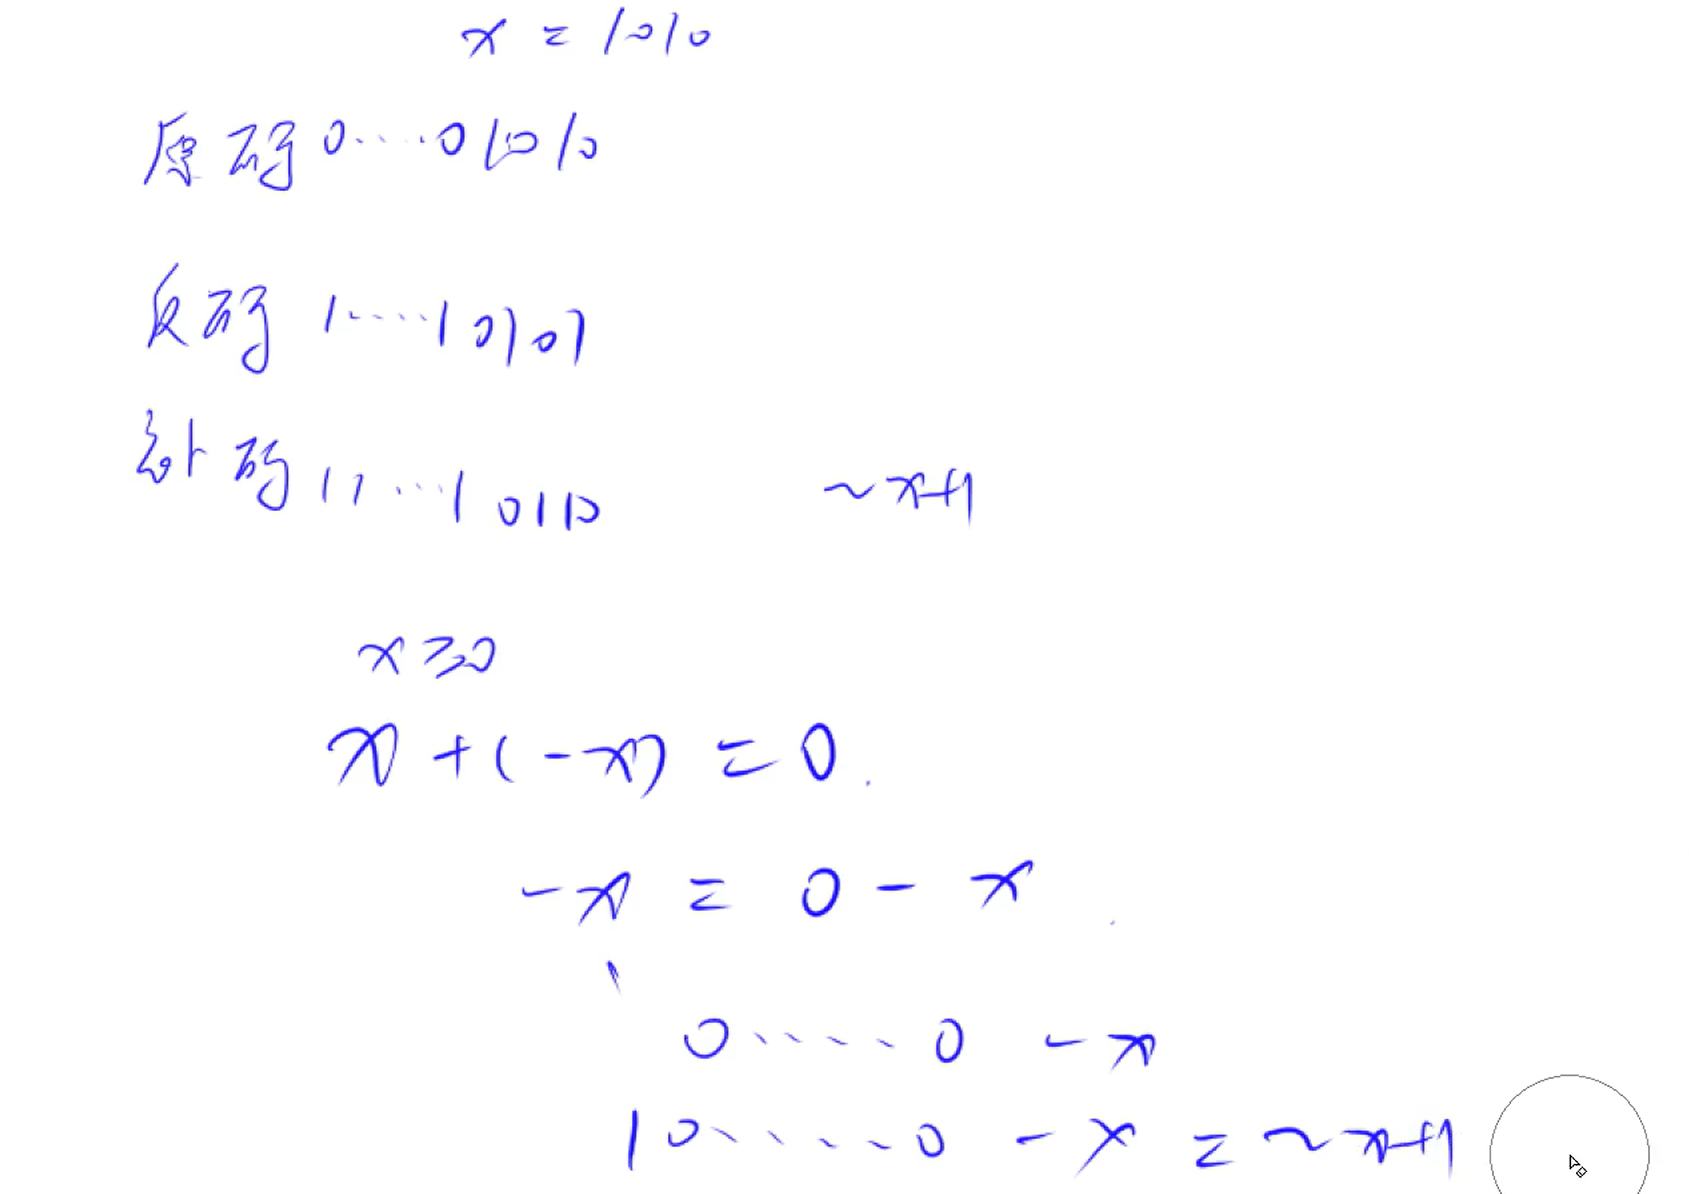 x = 1010
原码 0····01010
反码 1····10101
补码 11···10110 ~x+1
x≥0
x+(-x)=0.
-x = 0 - x
0····0 -x
10·····0 -x = ~x+1